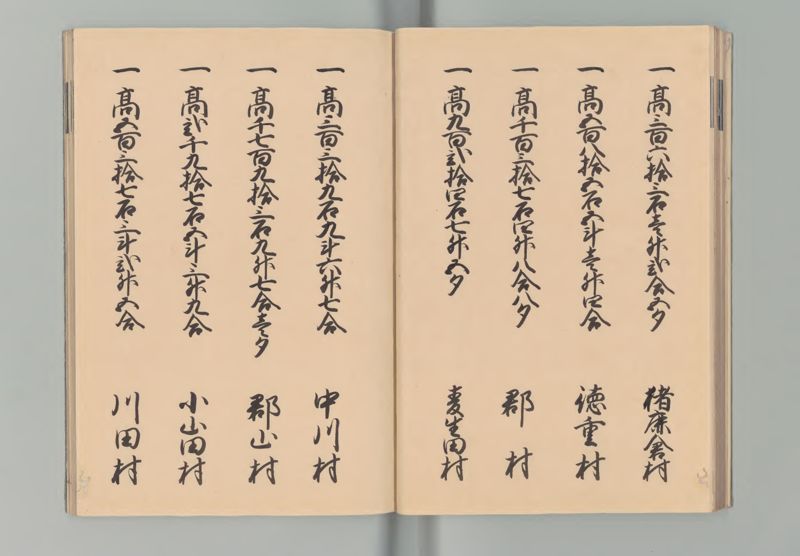 一高三百六拾三石壱升弐合五夕 猪鹿倉村
一高五百八拾五石五斗壱升四合 徳重村
一高千百三拾七石四升八合八夕 郡村
一高九百弐拾四石七升五夕 麦生田村
一高三百三拾九石九斗六升七合 中川村
一高千七百九拾三石九升七合壱夕 郡山村
一高弐千九拾七石五斗三升九合 小山田村
一高五百三拾七石三斗弐升五合 川田村